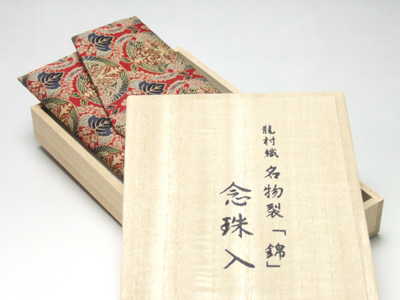 龍村織 名物裂「錦」
念珠入